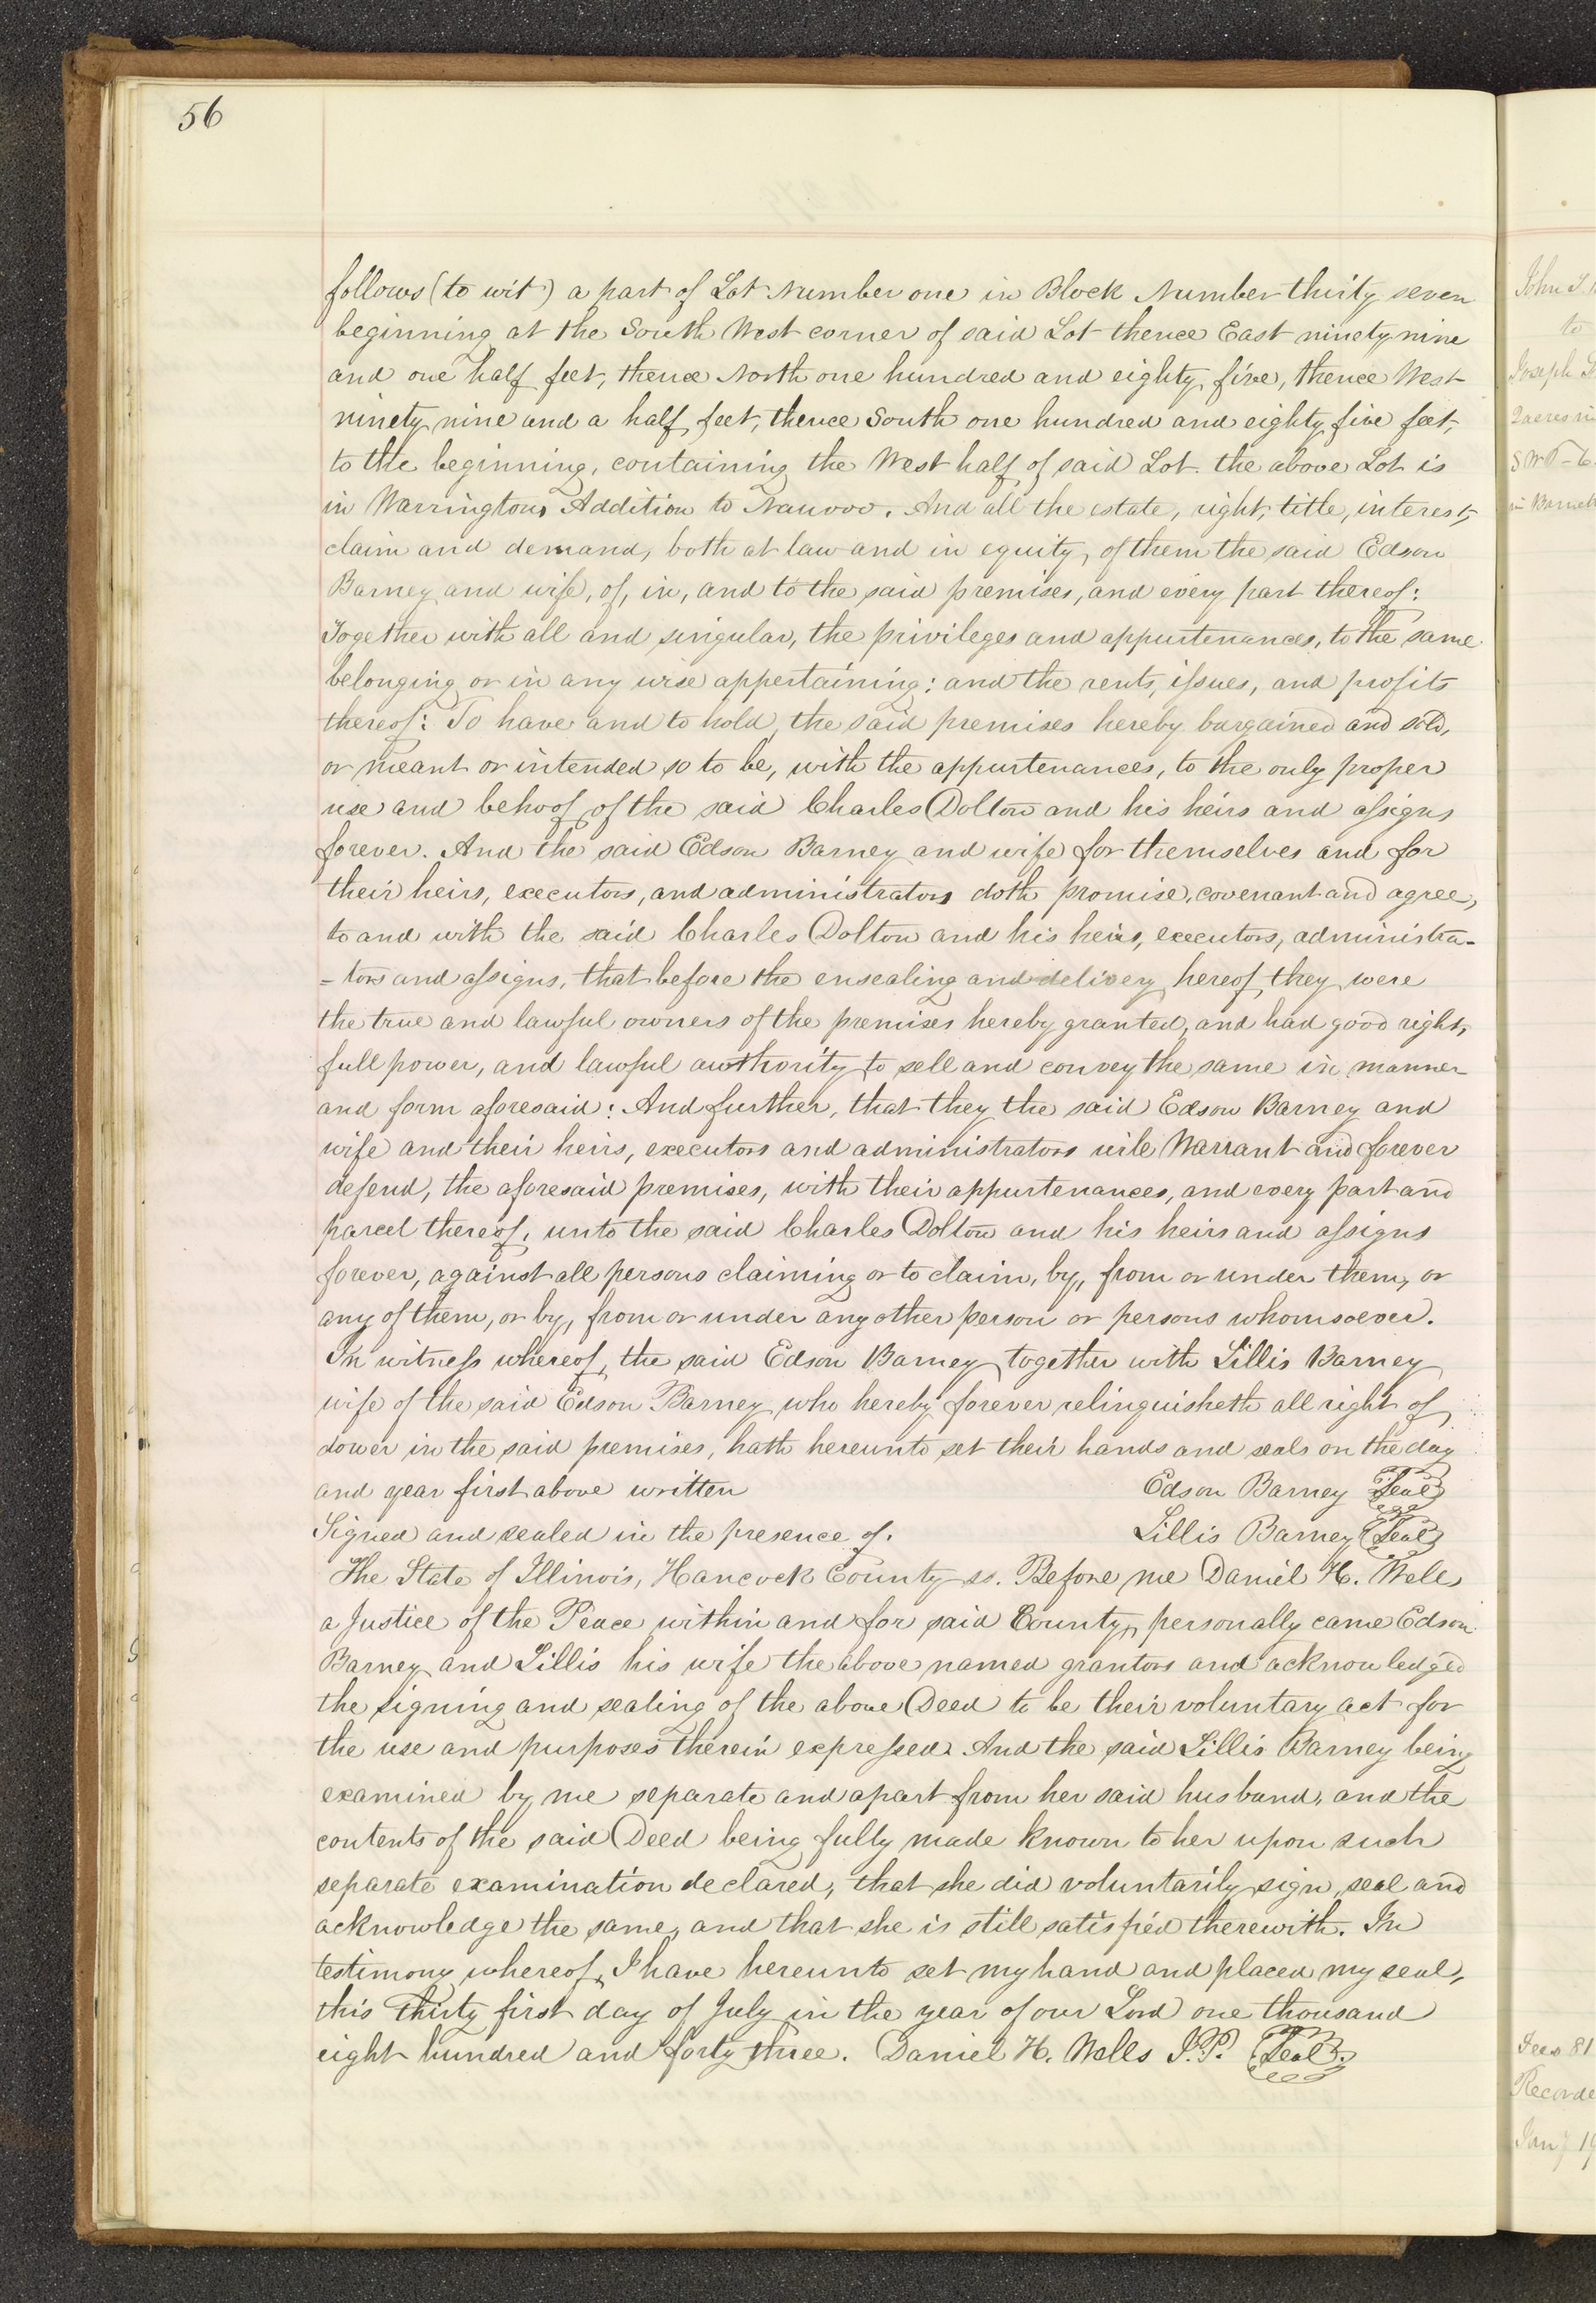 56
follows (to wit) a part of Lot Number one in Block Number thirty seven
beginning at the South West corner of said Lot thence East ninety nine
and one half feet, thence North one hundred and eighty five, thence West
ninety nine and a half feet, thence South one hundred and eighty five feet,
to the beginning, containing the West half of said Lot. the above Lot is
in Warringtons Addition to Nauvoo. And all the estate, right, title, interest,
claim and demand, both at law and in equity, of them the said Edson
Barney and wife, of, in, and to the said premises, and every part thereof:
Together with all and singular, the privileges and appurtenances, to the same
belonging or in any wise appertaining: and the rents, issues, and profits
thereof: To have and to hold, the said premises hereby bargained and sold,
or meant or intended so to be, with the appurtenances, to the only proper
use and behoof of the said Charles Dolton and his heirs and assigns
forever. And the said Edson Barney and wife for themselves and for
their heirs, executors, and administrators doth promise, covenant and agree,
to and with the said Charles Dolton and his heirs, executors, administra-
-tors and assigns, that before the ensealing and delivery hereof, they were
the true and lawful owners of the premises hereby granted, and had good right,
full power, and lawful authority to sell and convey the same in manner
and form aforesaid: And further, that they the said Edson Barney and
wife and their heirs, executors and administrators will Warrant and forever
defend, the aforesaid premises, with their appurtenances, and every part and
parcel thereof, unto the said Charles Dolton and his heirs and assigns
forever, against all persons claiming or to claim, by, from or under them, or
any of them, or by, from or under any other person or persons whomsoever.
In witness whereof, the said Edson Barney together with Lillis Barney
wife of the said Edson Barney who hereby forever relinquisheth all right of
dower in the said premises, hath hereunto set their hands and seals on the day
and year first above written Edson Barney Seal
Signed and sealed in the presence of. Lillis Barney Seal
The State of Illinois, Hancock County ss. Before me Daniel H. Wells
a Justice of the Peace within and for said County, personally came Edson
Barney and Lillis his wife the above named grantors and acknowledged
the signing and sealing of the above Deed to be their voluntary act for
the use and purposes therein expressed. And the said Lillis Barney being
examined by me separate and apart from her said husband, and the
contents of the said Deed being fully made known to her upon such
separate examination declared, that she did voluntarily sign, seal and
acknowledge the same, and that she is still satisfied therewith. In
testimony whereof, I have hereunto set my hand and placed my seal,
this Thirty first day of July in the year of our Lord one thousand
eight hundred and forty three. Daniel H. Wells J.P. Seal.
John
to
Joseph